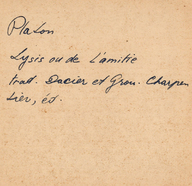 Platon
Lysis ou de L'amitie
trad. Dacier et Grou. Charpen
tier, éd.